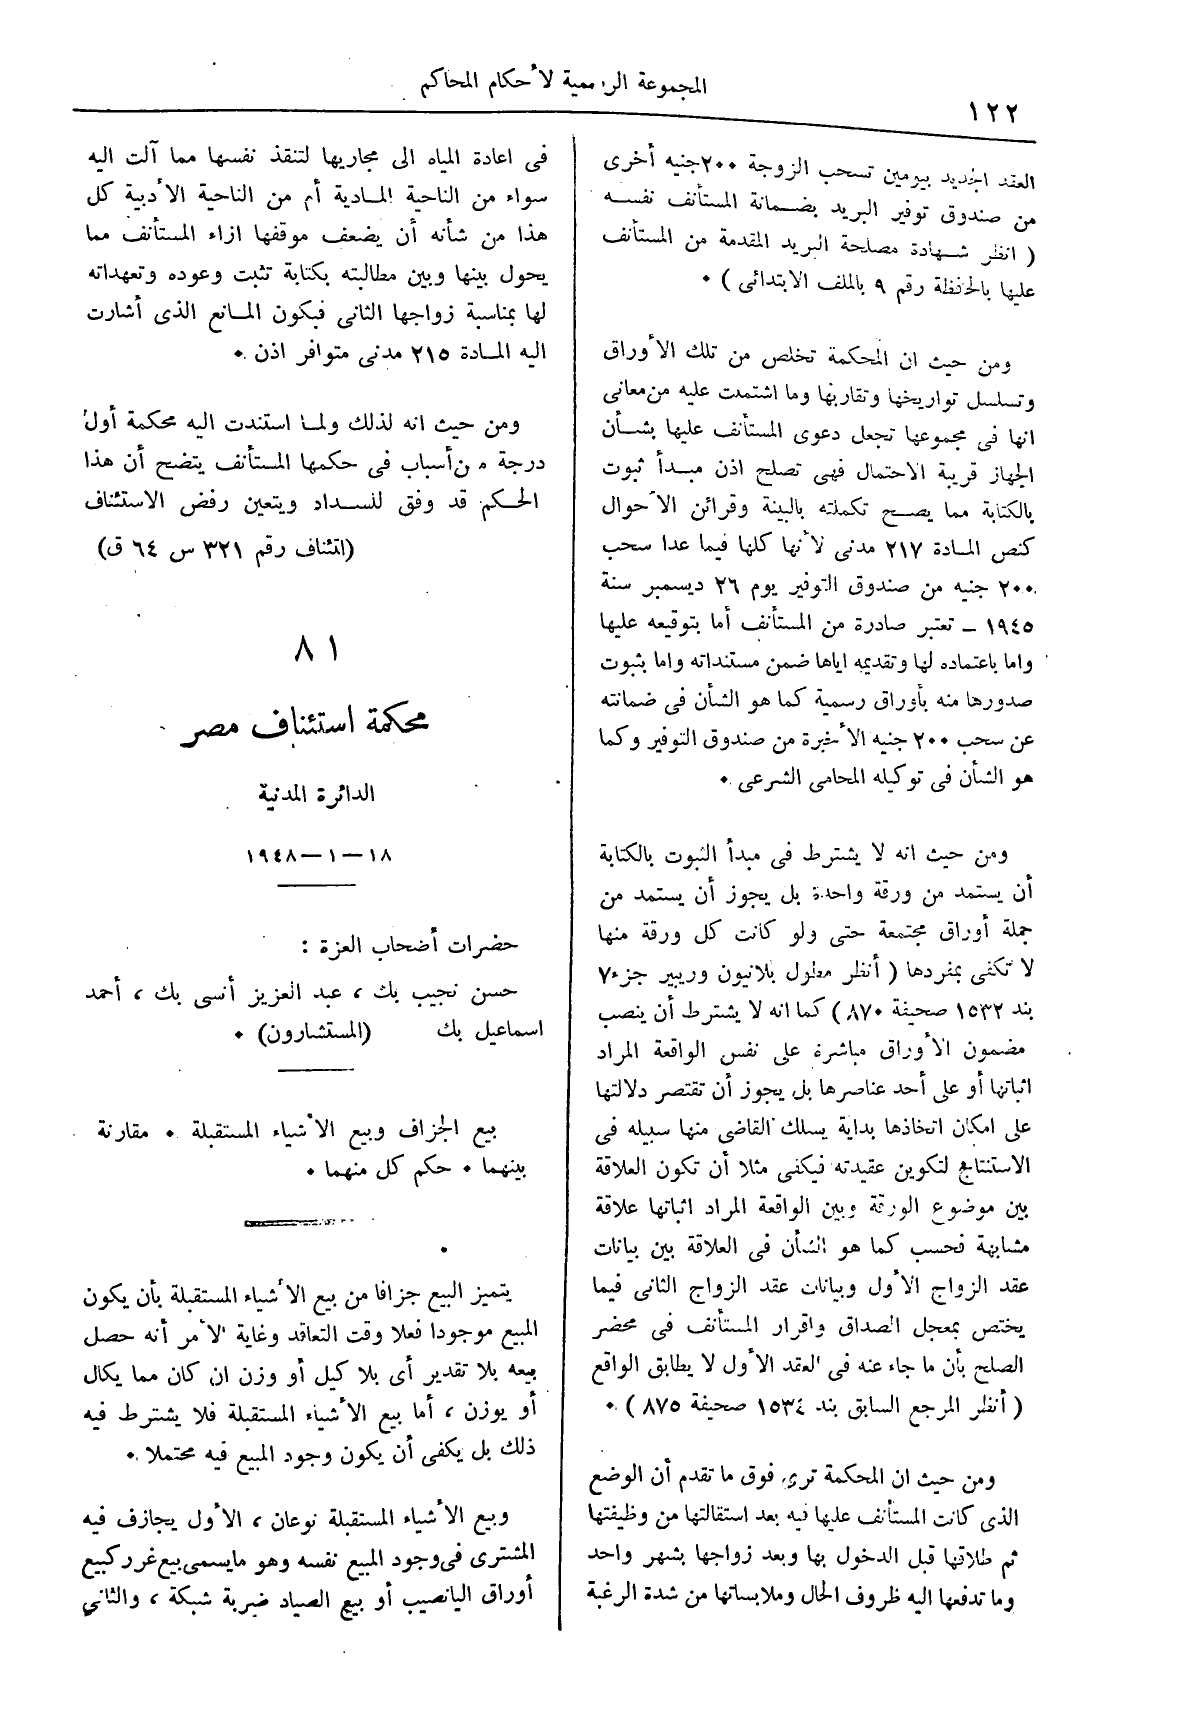 المجموعة الرسمية لأحكام المحاكم
١٢٢
العقد الجديد بيومين تسحب الزوجة ٢٠٠ جنيه أخرى
من صندوق توفير البريد بضمانة المستأنف نفسه
( انظر شهادة مصلحة البريد المقدمة من المستأنف
عليها بالحافظة رقم ٩ بالملف الابتدائى ) ٠
ومن حيث ان المحكمة تخلص من تلك الأوراق
وتسلسل تواريخها وتقاربها وما اشتمدت عليه من معانى
انها فى مجموعها تجعل دعوى المستأنف عليها بشأن
الجهاز قريبة الاحتمال فهى تصلح اذن مبدأ ثبوت
بالكتابة مما يصح تكملته بالبينة وقرائن الأحوال
كنص المادة ٢١٧ مدنى لأنها كلها فيما عدا سحب
٢٠٠ جنيه من صندوق التوفير يوم ٢٦ ديسمبر سنة
١٩٤٥ ـ تعتبر صادرة من المستأنف أما بتوقيعه عليها
واما باعتماده لها وتقديمه اياها ضمن مستنداته واما بثبوت
صدورها منه بأوراق رسمية كما هو الشأن فى ضمانته
عن سحب ٢٠٠ جنيه الأخيرة من صندوق التوفير وكما
هو الشأن فى توكيله المحامى الشرعى ٠
ومن حيث انه لا يشترط فى مبدأ الثبوت بالكتابة
أن يستمد من ورقة واحدة بل يجوز أن يستمد من
جملة أوراق مجتمعة حتى ولو كانت كل ورقة منها
لا تكفى بمفردها ( أنظر مطول بلانيون وريبير جزء٧
بند ١٥٣٢ صحيفة ٨٧٠ ) كما انه لا يشترط أن ينصب
مضمون الأوراق مباشرة على نفس الواقعة المراد
اثباتها أو على أحد عناصرها بل يجوز أن تقتصر دلالتها
على امكان اتخاذها بداية يسلك القاضى منها سبيله فى
الاستنتاج لتكوين عقيدته فيكفى مثلا أن تكون العلاقة
بين موضوع الورقة وبين الواقعة المراد اثباتها علاقة
مشابهة فحسب كما هو الشأن فى العلاقة بين بيانات
عقد الزواج الأول وبيانات عقد الزواج الثانى فيما
يختص بمعجل الصداق واقرار المستأنف فى محضر
الصلح بأن ما جاء عنه فى العقد الأول لا يطابق الواقع
( أنظر المرجع السابق بند ١٥٣٤ صحيفة ٨٧٥ ) ٠
ومن حيث ان المحكمة ترى فوق ما تقدم أن الوضع
الذى كانت المستأنف عليها فيه بعد استقالتها من وظيفتها
ثم طلاقها قبل الدخول بها وبعد زواجها بشهر واحد
وما تدفعها اليه ظروف الحال وملابساتها من شدة الرغبة
فى اعادة المياه الى مجاريها لتنقذ نفسها مما آلت اليه
سواء من الناحية المادية أم من الناحية الأدبية كل
هذا من شأنه أن يضعف موقفها ازاء المستأنف مما
يحول بينها وبين مطالبته بكتابة تثبت وعوده وتعهداته
لها بمناسبة زواجها الثانى فيكون المانع الذى أشارت
اليه المادة ٢١٥ مدنى متوافر اذن ٠
ومن حيث انه لذلك ولما استندت اليه محكمة أول
درجة من أسباب فى حكمها المستأنف يتضح أن هذا
الحكم قد وفق للسداد ويتعين رفض الاستئناف
(ائتئناف رقم ٣٢١ س ٦٤ ق)
٨١
محكمة استئناف مصر
الدائرة المدنية
١٨ — ١ — ١٩٤٨
حضرات أضحاب العزة :
حسن نجيب بك ، عبد العزيز أنسى بك ، أحمد
اسماعيل بك (المستشارون) ٠
بيع الجزاف وبيع الأشياء المستقبلة ٠ مقارنة
بينهما ٠ حكم كل منهما ٠
يتميز البيع جزافا من بيع الأشياء المستقبلة بأن يكون
المبيع موجودا فعلا وقت التعاقد وغاية الأمر أنه حصل
بيعه بلا تقدير أى بلا كيل أو وزن ان كان مما يكال
أو يوزن ، أما بيع الأشياء المستقبلة فلا يشترط فيه
ذلك بل يكفى أن يكون وجود المبيع فيه محتملا ٠
وبيع الأشياء المستقبلة نوعان ، الأول يجازف فيه
المشترى فى وجود المبيع نفسه وهو مايسمى بيع غرر كبيع
أوراق اليانصيب أو بيع الصياد ضربة شبكة ، والثانى